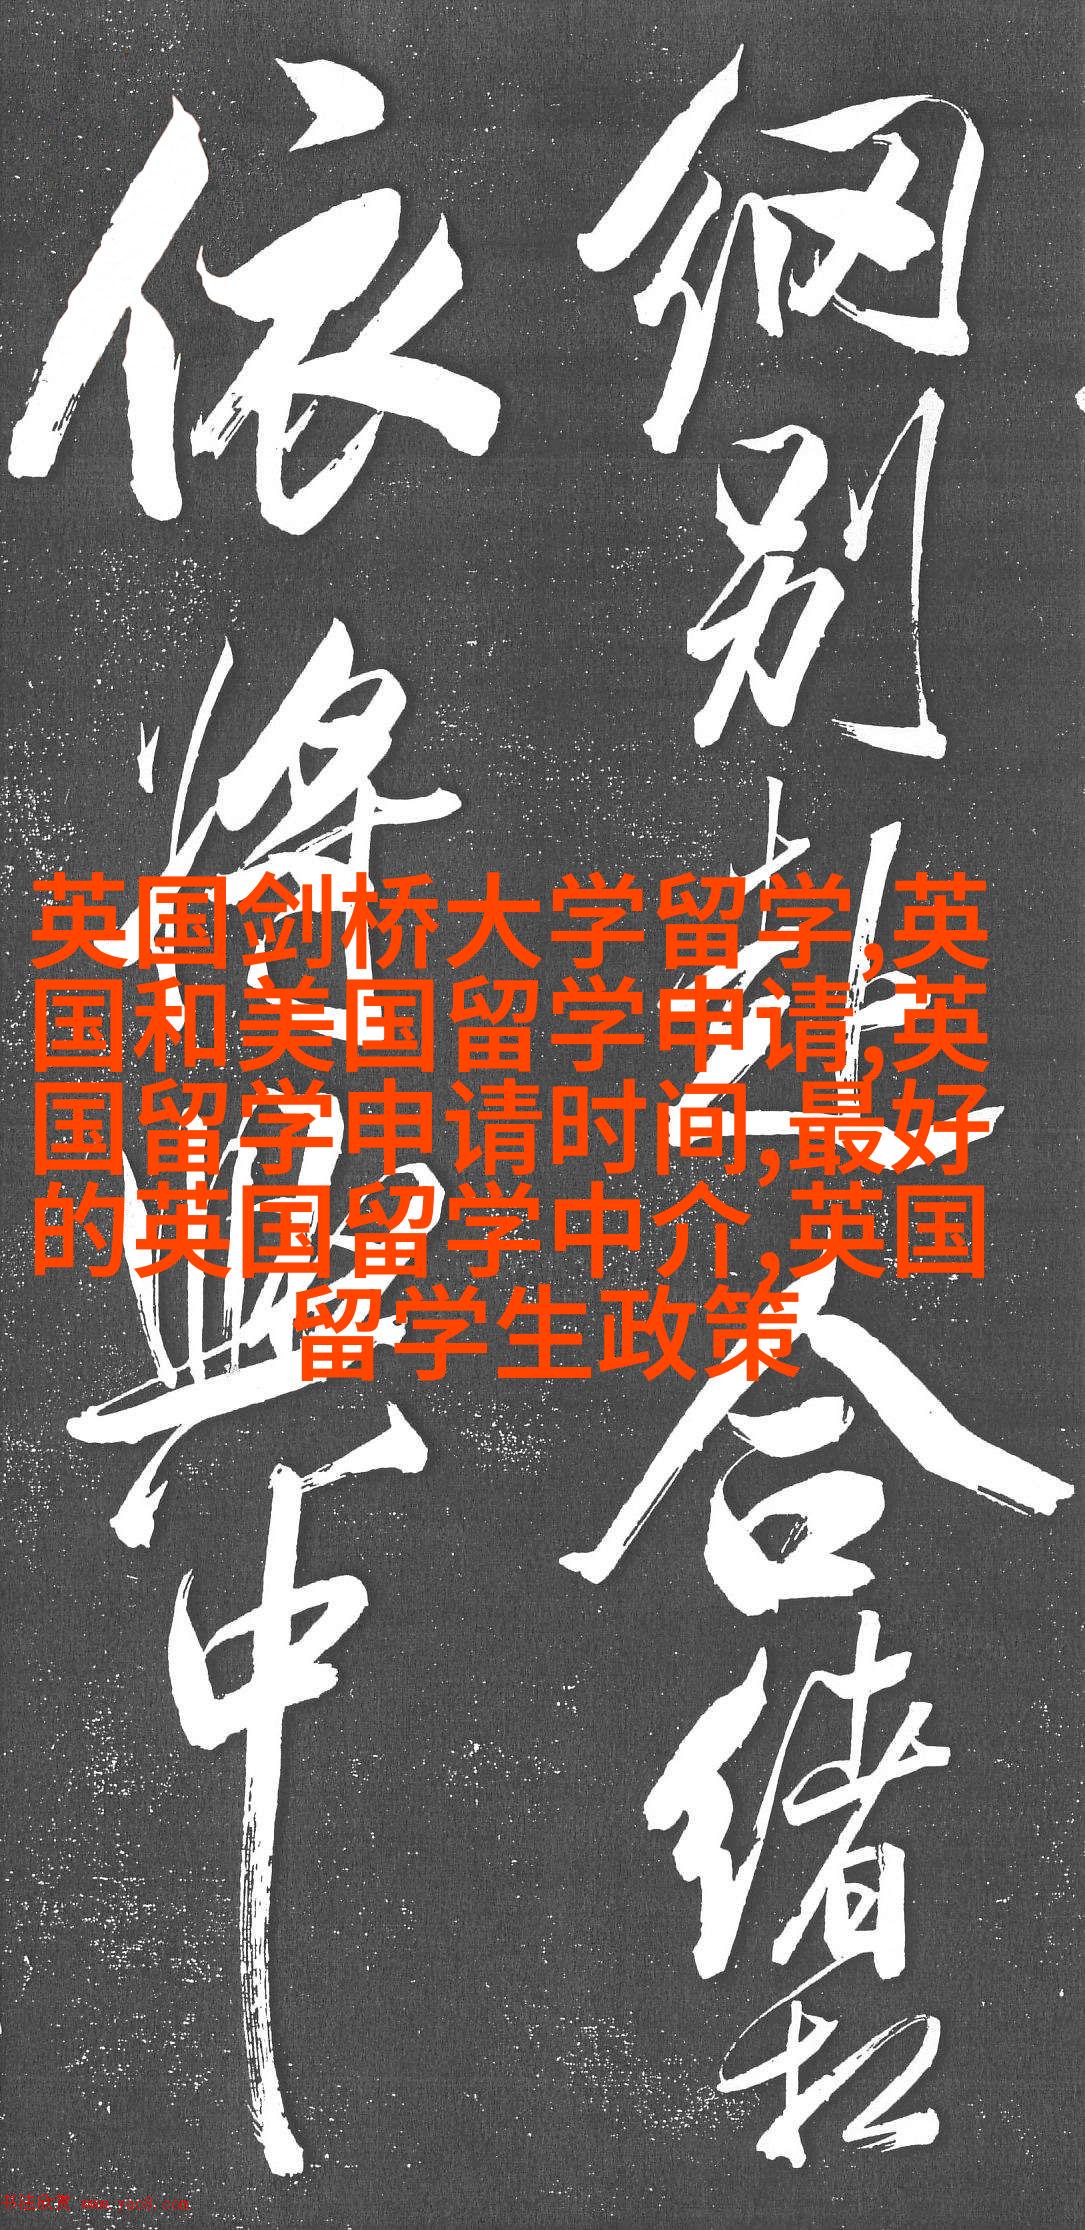 别
合
緒
依
將
中
英国剑桥大学留学,英
国和美国留学申请,英
国留学申请时间,最好
的英国留学中介,英国
留学生政策
书法欣赏 www.yac8.com